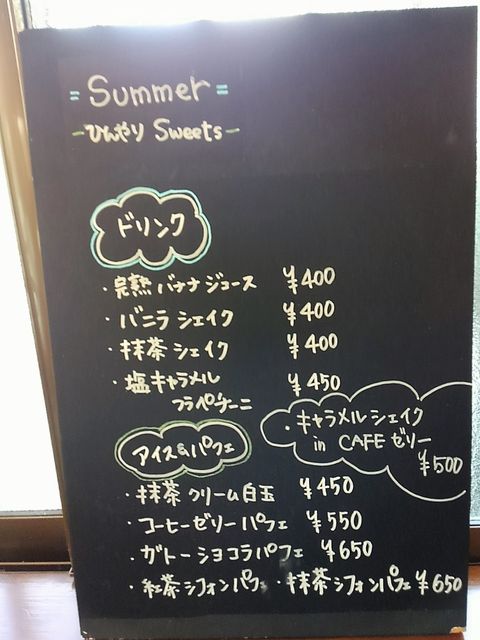 = Summer =
-ひんやり Sweets-
ドリンク
・完熟バナナジュース ¥400
・バニラシェイク ¥400
・抹茶シェイク ¥400
・塩キャラメル
フラペチーニ ¥450
・キャラメルシェイク
in CAFEゼリー
¥500
アイス&パフェ
・抹茶クリーム白玉 ¥450
・コーヒーゼリーパフェ ¥550
・ガトーショコラパフェ ¥650
・紅茶シフォンパフェ ・抹茶シフォンパフェ ¥650